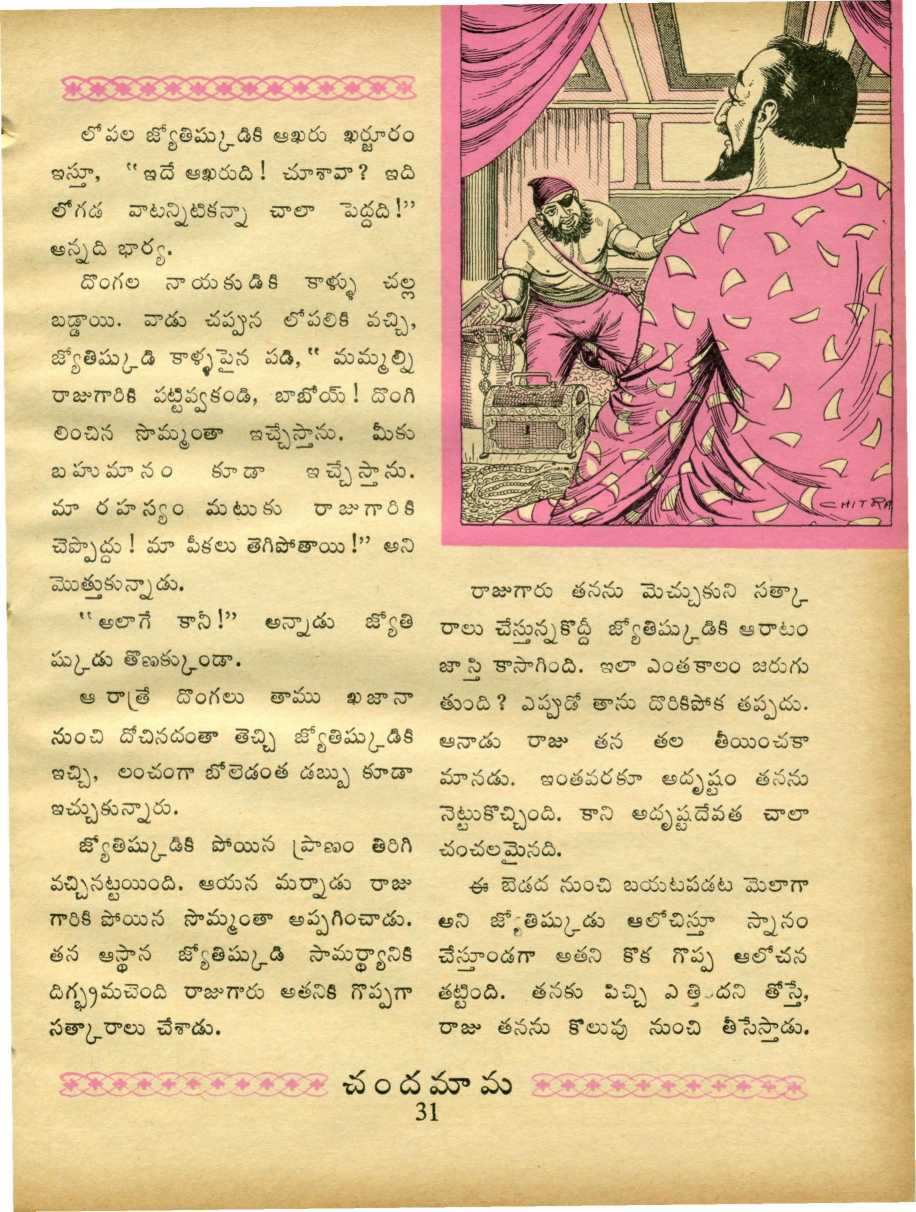 లోపల జ్యోతిష్కుడికి ఆఖరు ఖర్జూరం
ఇస్తూ, “ఇదే ఆఖరుది! చూశావా? ఇది
లోగడ వాటన్నిటికన్నా చాలా పెద్దది!”
అన్నది భార్య.
దొంగల నాయకుడికి కాళ్ళు చల్ల
బడ్డాయి. వాడు చప్పున లోపలికి వచ్చి,
జ్యోతిష్కుడి కాళ్ళపైన పడి, “మమ్మల్ని
రాజుగారికి పట్టివ్వకండి, బాబోయ్! దొంగి
లించిన సొమ్మంతా ఇచ్చేస్తాను. మీకు
బహుమానం కూడా ఇచ్చేస్తాను.
మా రహస్యం మటుకు రాజుగారికి
చెప్పొద్దు! మా పీకలు తెగిపోతాయి!” అని
మొత్తుకున్నాడు.
“అలాగే కానీ!” అన్నాడు జ్యోతి
ష్కుడు తొణక్కుండా.
ఆ రాత్రే దొంగలు తాము ఖజానా
నుంచి దోచినదంతా తెచ్చి జ్యోతిష్కుడికి
ఇచ్చి, లంచంగా బోలెడంత డబ్బు కూడా
ఇచ్చుకున్నారు.
జ్యోతిష్కుడికి పోయిన ప్రాణం తిరిగి
వచ్చినట్టయింది. ఆయన మర్నాడు రాజు
గారికి పోయిన సొమ్మంతా అప్పగించాడు.
తన ఆస్థాన జ్యోతిష్కుడి సామర్థ్యానికి
దిగ్భ్రమచెంది రాజుగారు అతనికి గొప్పగా
సత్కారాలు చేశాడు.
CHITRA
రాజుగారు తనను మెచ్చుకుని సత్కా
రాలు చేస్తున్నకొద్దీ జ్యోతిష్కుడికి ఆరాటం
జాస్తి కాసాగింది. ఇలా ఎంతకాలం జరుగు
తుంది? ఎప్పుడో తాను దొరికిపోక తప్పదు.
ఆనాడు రాజు తన తల తీయించకా
మానడు. ఇంతవరకూ అదృష్టం తనను
నెట్టుకొచ్చింది. కాని అదృష్టదేవత చాలా
చంచలమైనది.
ఈ బెడద నుంచి బయటపడట మెలాగా
అని జ్యోతిష్కుడు ఆలోచిస్తూ స్నానం
చేస్తూండగా అతని కొక గొప్ప ఆలోచన
తట్టింది. తనకు పిచ్చి ఎత్తిందని తోస్తే,
రాజు తనను కొలువు నుంచి తీసేస్తాడు.
చందమామ
31